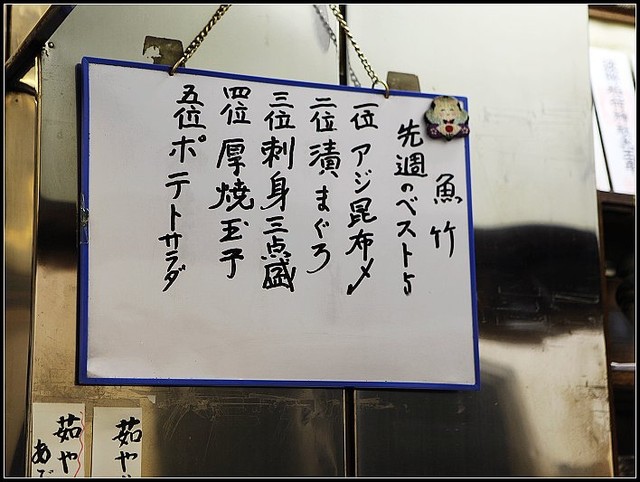 魚竹
先週のベスト5
一位 アジ昆布〆
二位 漬まぐろ
三位 刺身三点盛
四位 厚焼玉子
五位 ポテトサラダ
茹や
茹や
あ